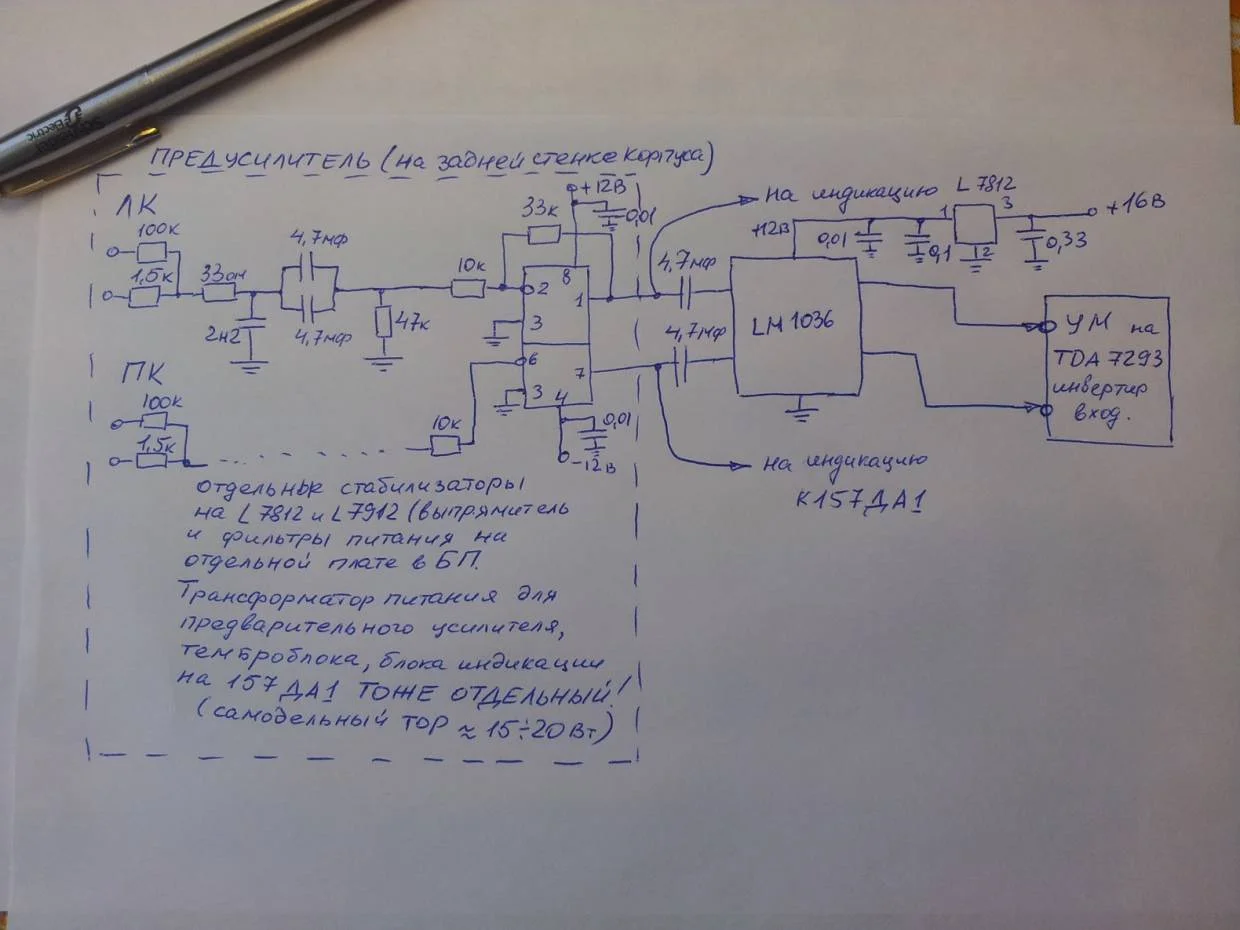 Schneider Electric
ПРЕДУСИЛИТЕЛЬ (на задней стенке корпуса)
ЛК
100к
1,5к
33ом
2н2
4,7мф
4,7мф
47к
10к
33к
+12В
0,01
2
8
1
3
6
7
3
4
0,01
-12В
10к
ПК
100к
1,5к
на индикацию
L 7812
+12В
0,01
0,1
1
3
12
0,33
+16В
4,7мф
4,7мф
LM 1036
УМ на
TDA 7293
инвертир
вход.
на индикацию
К157ДА1
отдельные стабилизаторы
на L7812 и L7912 (выпрямитель
и фильтры питания на
отдельной плате в БП.
Трансформатор питания для
предварительного усилителя,
темброблока, блока индикации
на 157ДА1 ТОЖЕ ОТДЕЛЬНЫЙ!
(самодельный ТОР ≈ 15÷20Вт)